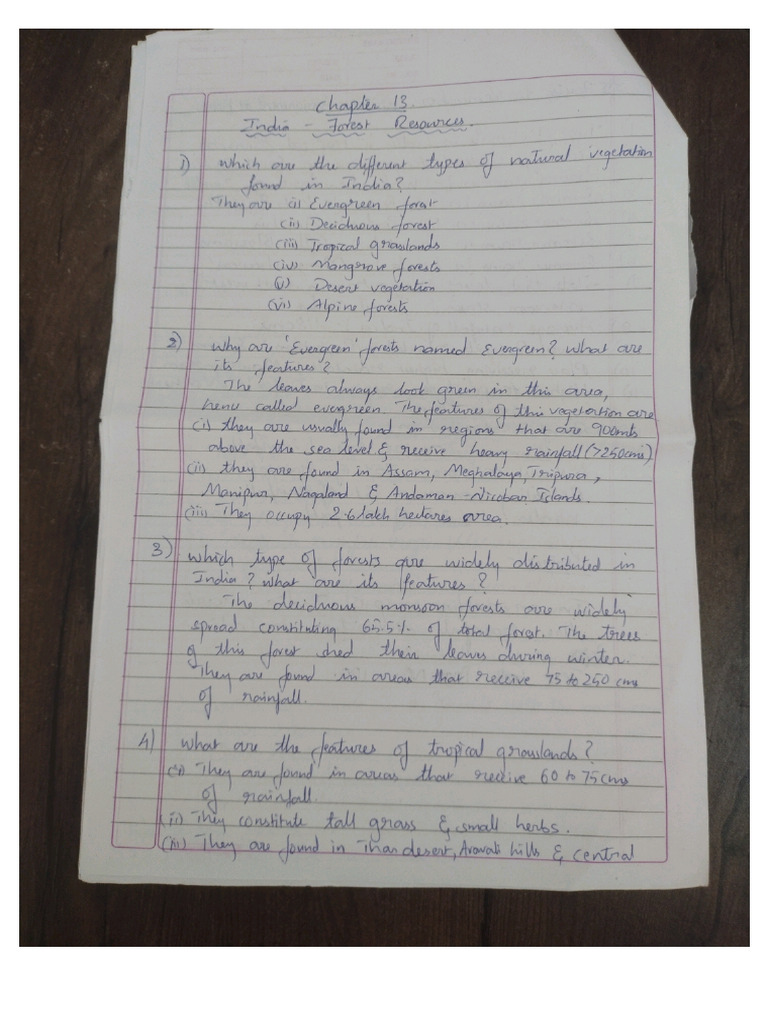 Chapter 13.
India - Forest Resources.
1) Which are the different types of natural vegetation
found in India?
They are (i) Evergreen forest
(ii) Deciduous forest
(iii) Tropical grasslands
(iv) Mangrove forests
(v) Desert vegetation
(vi) Alpine forests
2) Why are 'Evergreen' forests named Evergreen? What are
its features?
The leaves always look green in this area,
hence called evergreen. The features of this vegetation are
(i) they are usually found in regions that are 900mts
above the sea level & receive heavy rainfall (>250cms)
(ii) they are found in Assam, Meghalaya, Tripura,
Manipur, Nagaland & Andaman-Nicobar Islands.
(iii) They occupy 2.6 lakh hectares area.
3) Which type of forests are widely distributed in
India? What are its features?
The deciduous monsoon forests are widely
spread constituting 65.5% of total forest. The trees
of this forest shed their leaves during winter.
They are found in areas that receive 75 to 250 cms
of rainfall.
4) What are the features of tropical grasslands?
(i) They are found in areas that receive 60 to 75cms
of rainfall.
(ii) They constitute tall grass & small herbs.
(iii) They are found in Thar desert, Aravali hills & central